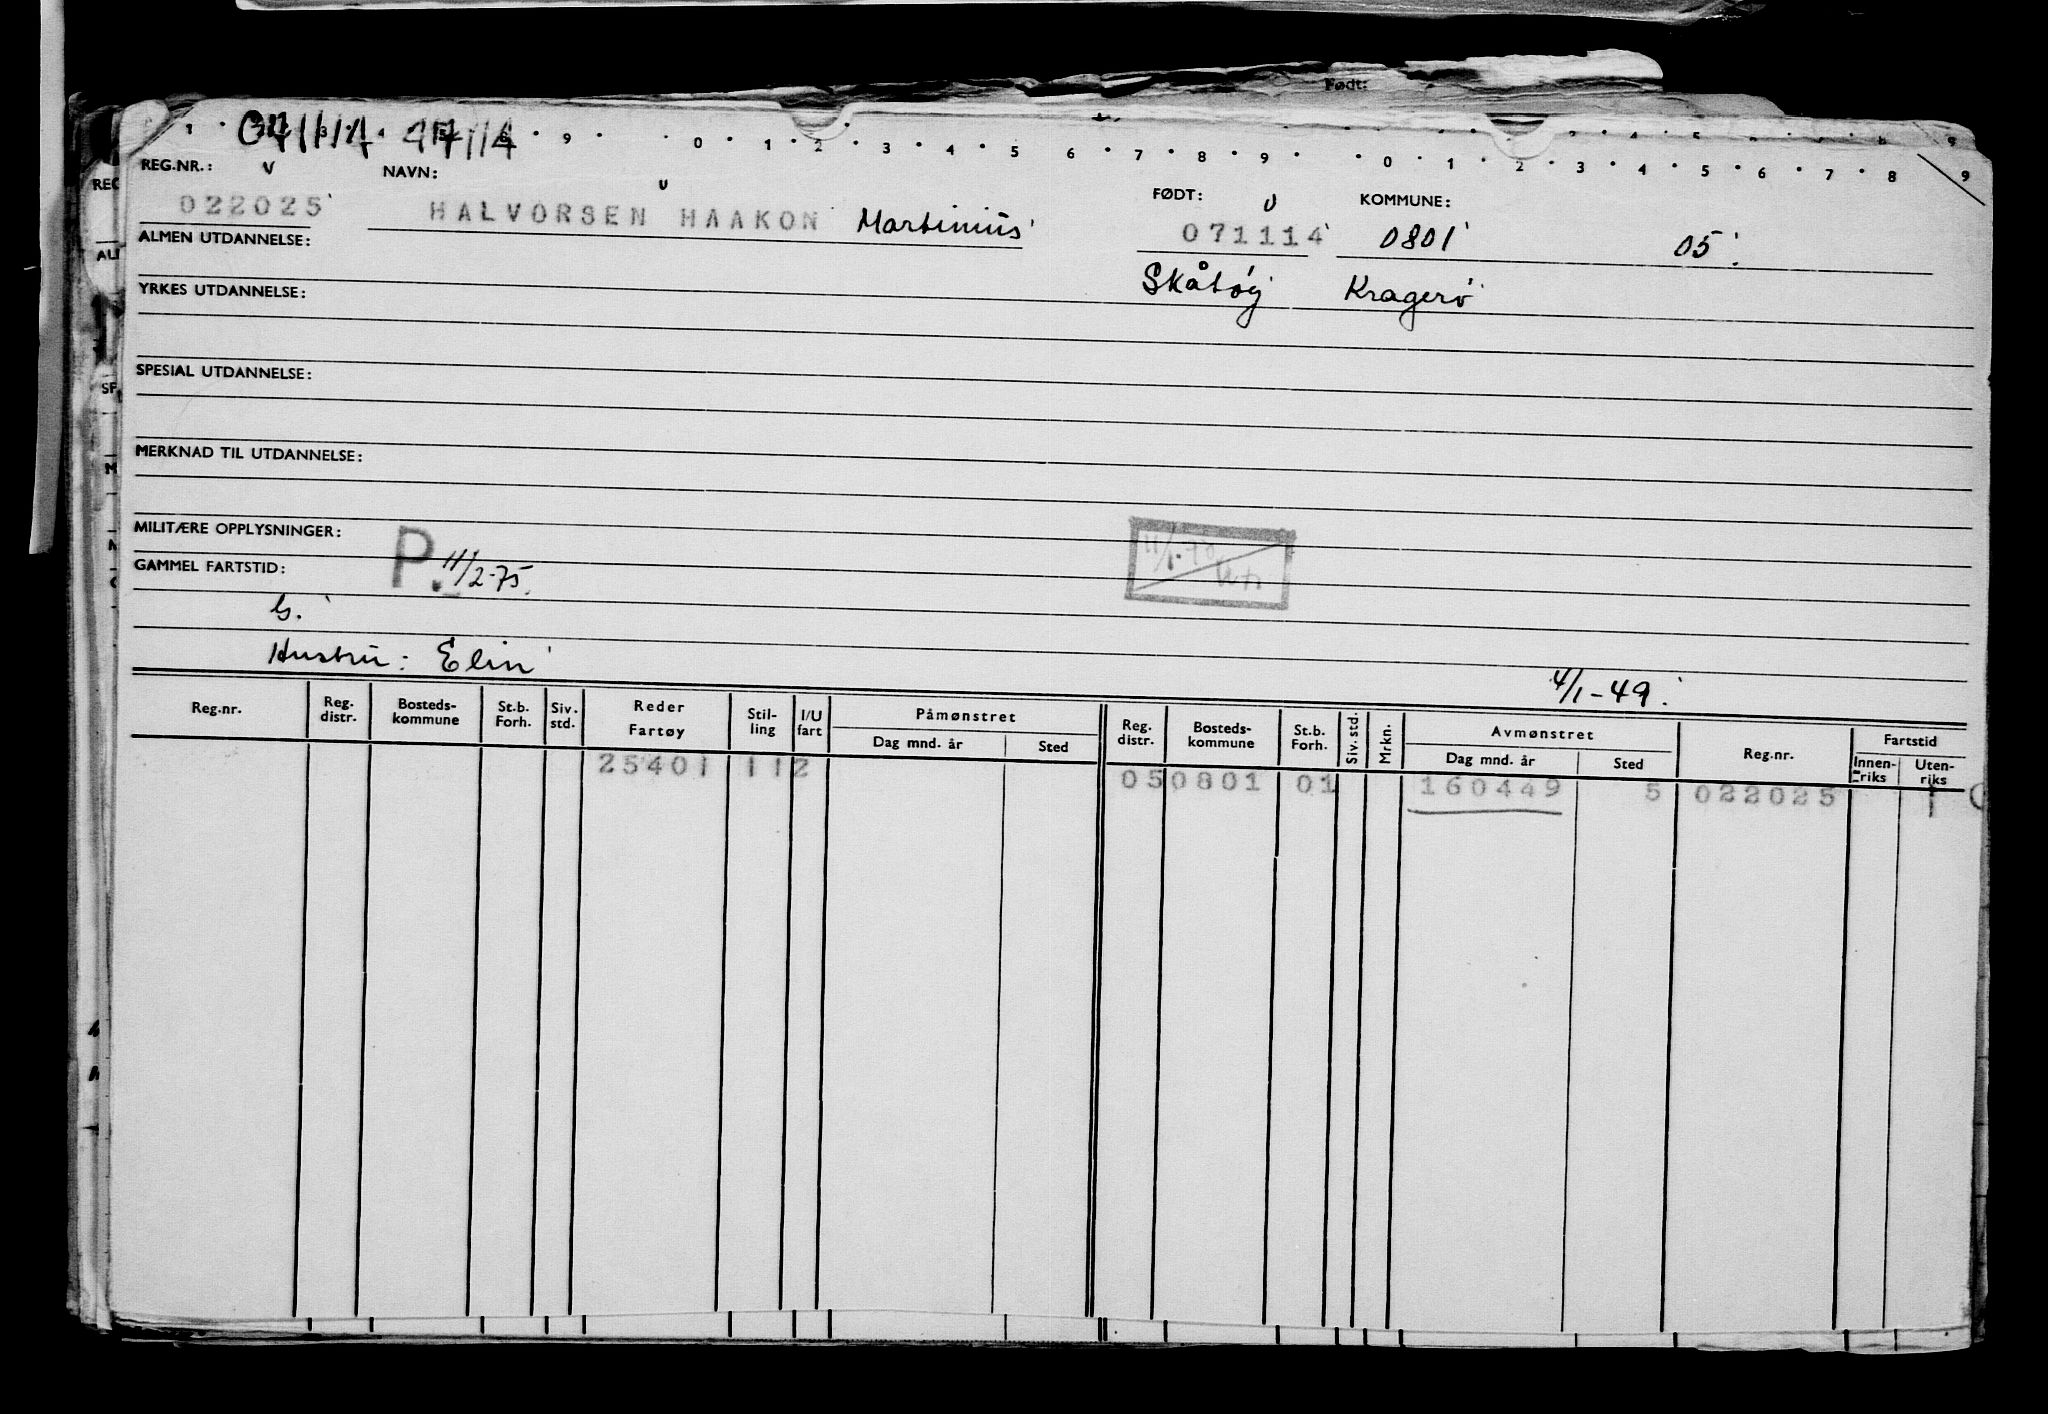 Født:
071114 47114
1 3 9 0 1 2 3 4 5 6 7 8 9 0 1 2 3 4 5 6 7 8 9
REG.NR.: NAVN: FØDT: KOMMUNE:
022025 HALVORSEN HAAKON Martinius 071114 0801 05
ALMEN UTDANNELSE:
Skåtøy Kragerø
YRKES UTDANNELSE:
SPESIAL UTDANNELSE:
MERKNAD TIL UTDANNELSE:
MILITÆRE OPPLYSNINGER:
P. 11/2-75.
GAMMEL FARTSTID:
G.
Hustru: Elin
4/1-49.
Reg.nr. Reg. distr. Bosteds-kommune St.b. Forh. Siv. std. Reder Fartøy Stil-ling I/U fart Påmønstret Dag mnd. år Sted Reg. distr. Bosteds-kommune St.b. Forh. Siv. std. Mrkn. Avmønstret Dag mnd. år Sted Reg.nr. Fartstid Innen-riks Uten-riks
25401 112 050801 01 160449 5 022025 1